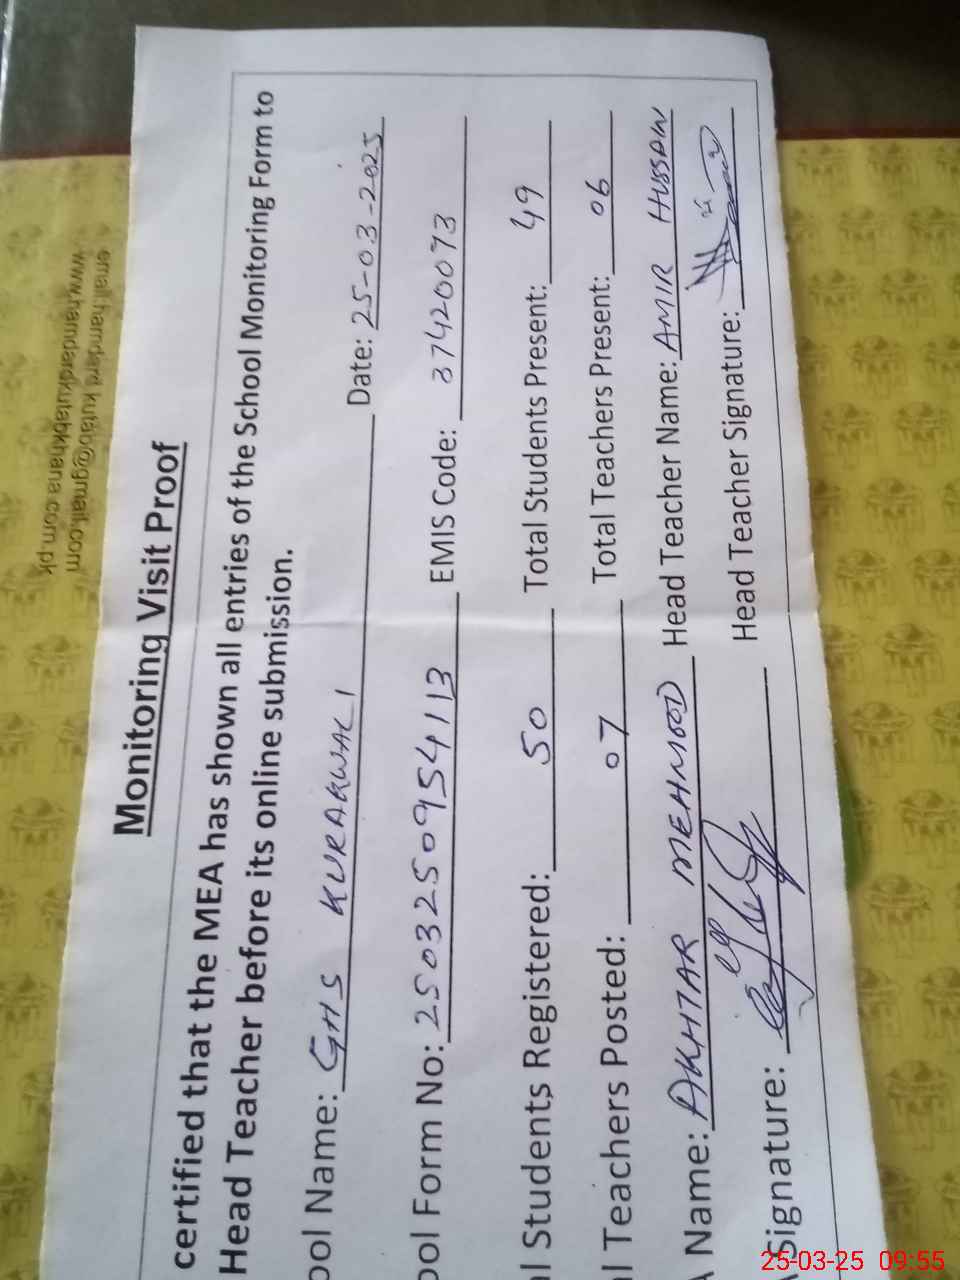 Monitoring Visit Proof
certified that the MEA has shown all entries of the School Monitoring Form to
Head Teacher before its online submission.
ool Name: GHS KURAGWALI Date: 25-03-2025
ool Form No: 2503250954113 EMIS Code: 37420073
al Students Registered: 50 Total Students Present: 49
l Teachers Posted: 07 Total Teachers Present: 06
A Name: AKHTAR MEHMOOD Head Teacher Name: AMIR HUSSAIN
Signature: Head Teacher Signature:
email:hamdard.kutab@gmail.com
www.hamdardkutabkhana.com.pk
25-03-25 09:55